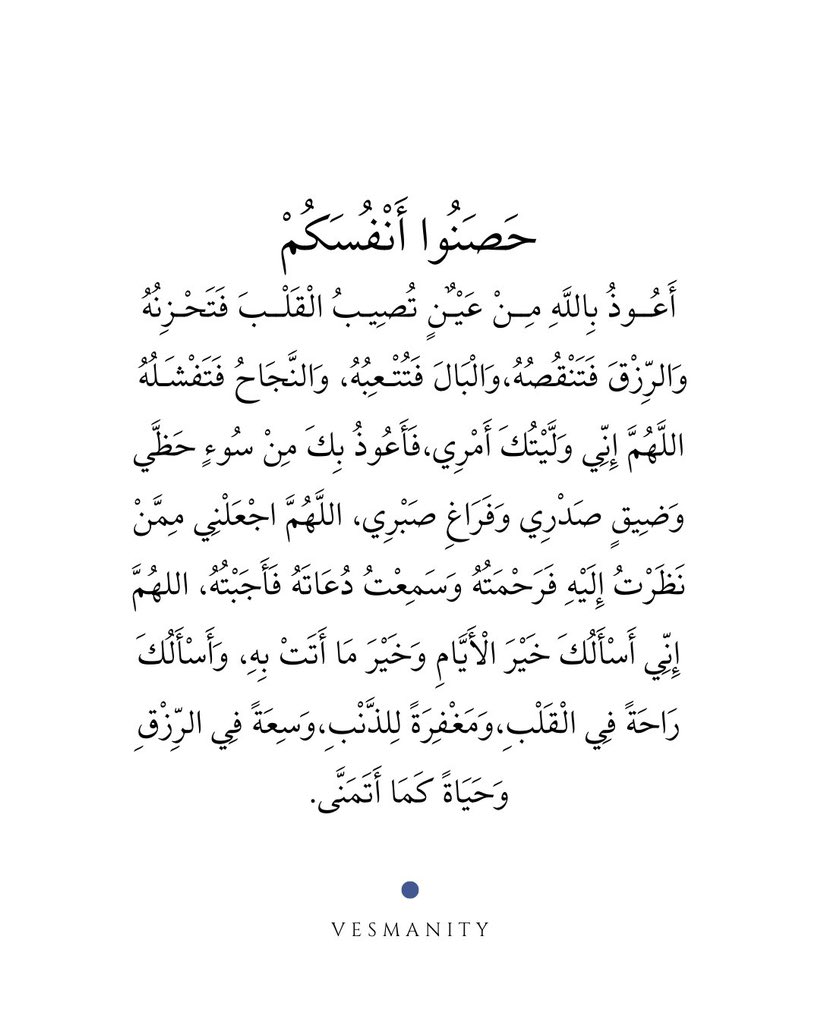 حَصَنُوا أَنْفُسَكُمْ
أَعُـوذُ بِاللَّهِ مِـنْ عَيْـنٌٍ تُصِيـبُ الْقَلْـبَ فَتَحْـزِنُهُ
وَالرِّزْقَ فَتَنْقُصُهُ،وَالْبَالَ فَتُتْـعِبُهُ، وَالنَّجَاحُ فَتَفْشَـلُهُ
اللَّهُمَّ إِنِّي وَلَّيْتُكَ أَمْرِي،فَأَعُوذُ بِكَ مِنْ سُوءٍ حَظَّي
وَضِيقٍ صَدْرِي وَفَرَاغِ صَبْرِي، اللَّهُمَّ اجْعَلْنِي مِمَّنْ
نَظَرْتُ إِلَيْهِ فَرَحْمَتُهُ وَسَمِعْتُ دُعَاتَهُ فَأَجَبْتُهُ، اللهُمَّ
إِنِّي أَسْأَلُكَ خَيْرَ الْأَيَّامِ وَخَيْرَ مَا أَتَتْ بِهِ، وَأَسْأَلُكَ
رَاحَةً فِي الْقَلْبِ،وَمَغْفِرَةً لِلذَّنْبِ،وَسِعَةً فِي الرِّزْقِ
وَحَيَاةً كَمَا أَتَمَنَّى.
VESMANITY